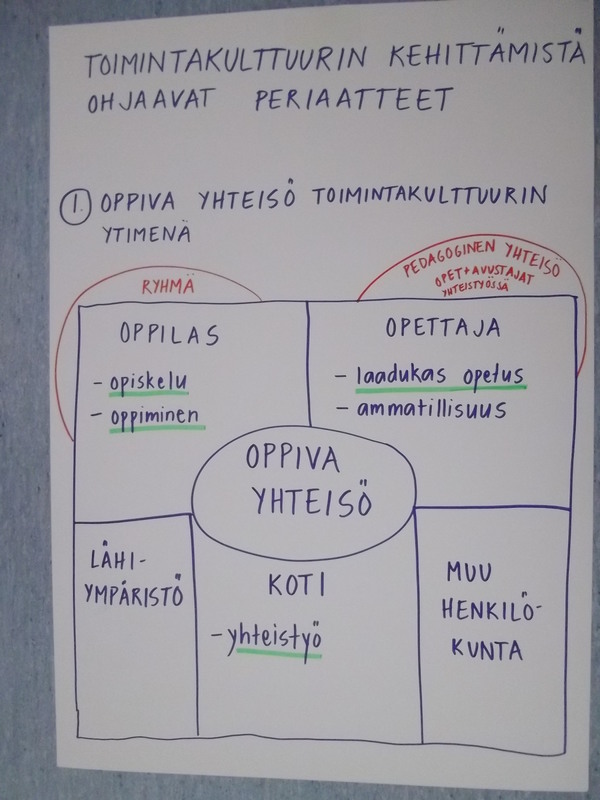 TOIMINTAKULTTUURIN KEHITTÄMISTÄ
OHJAAVAT PERIAATTEET
1. OPPIVA YHTEISÖ TOIMINTAKULTTUURIN
YTIMENÄ
RYHMÄ
PEDAGOGINEN YHTEISÖ
OPET+AVUSTAJAT
YHTEISTYÖSSÄ
OPPILAS
- opiskelu
- oppiminen
OPETTAJA
- laadukas opetus
- ammatillisuus
OPPIVA
YHTEISÖ
LÄHI-
YMPÄRISTÖ
KOTI
- yhteistyö
MUU
HENKILÖ-
KUNTA